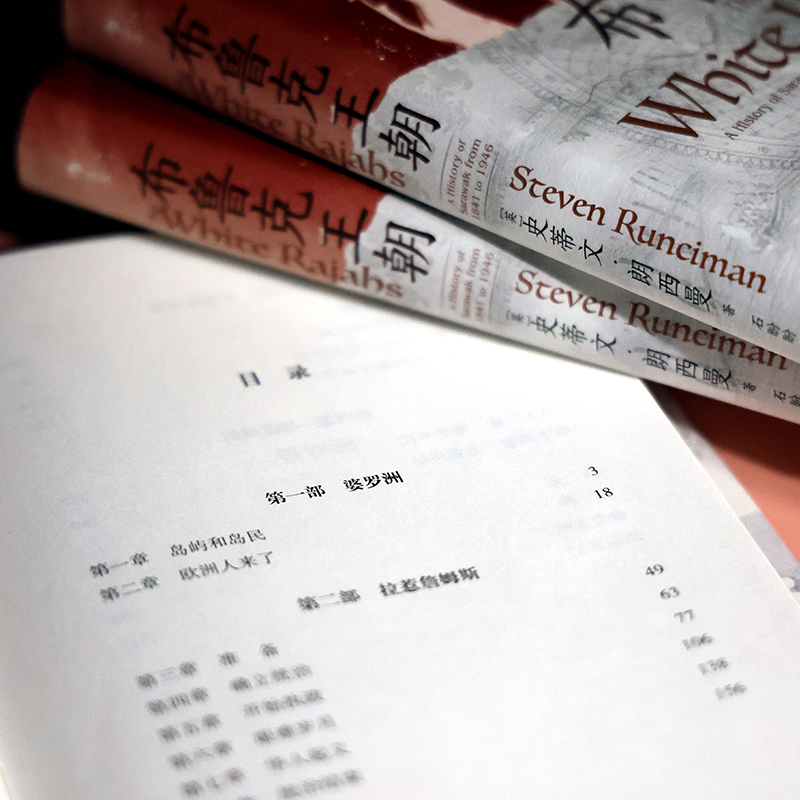 布鲁克王朝
White Rajahs
A History of
Sarawak from
1841 to 1946
布
White
A History of Sarawak
Steven Runciman
[英]史蒂文·朗西曼 著 石盼盼
布鲁克王朝
White Rajahs
A History of
Sarawak from
1841 to 1946
Steven Runciman
[英]史蒂文·朗西曼 著 石盼
目 录
第一部 婆罗洲
第一章 岛屿和岛民 3
第二章 欧洲人来了 18
第二部 拉惹詹姆斯
第三章 准 备 49
第四章 确立统治 63
第五章 开始执政 77
第六章 艰难岁月 106
第七章 138
156